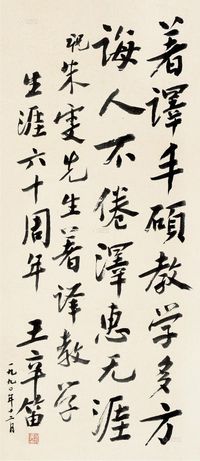 著譯丰碩教学多方
诲人不倦澤惠无涯
祝朱雯先生著译教学
生涯六十周年 王辛笛
一九九〇年十二月